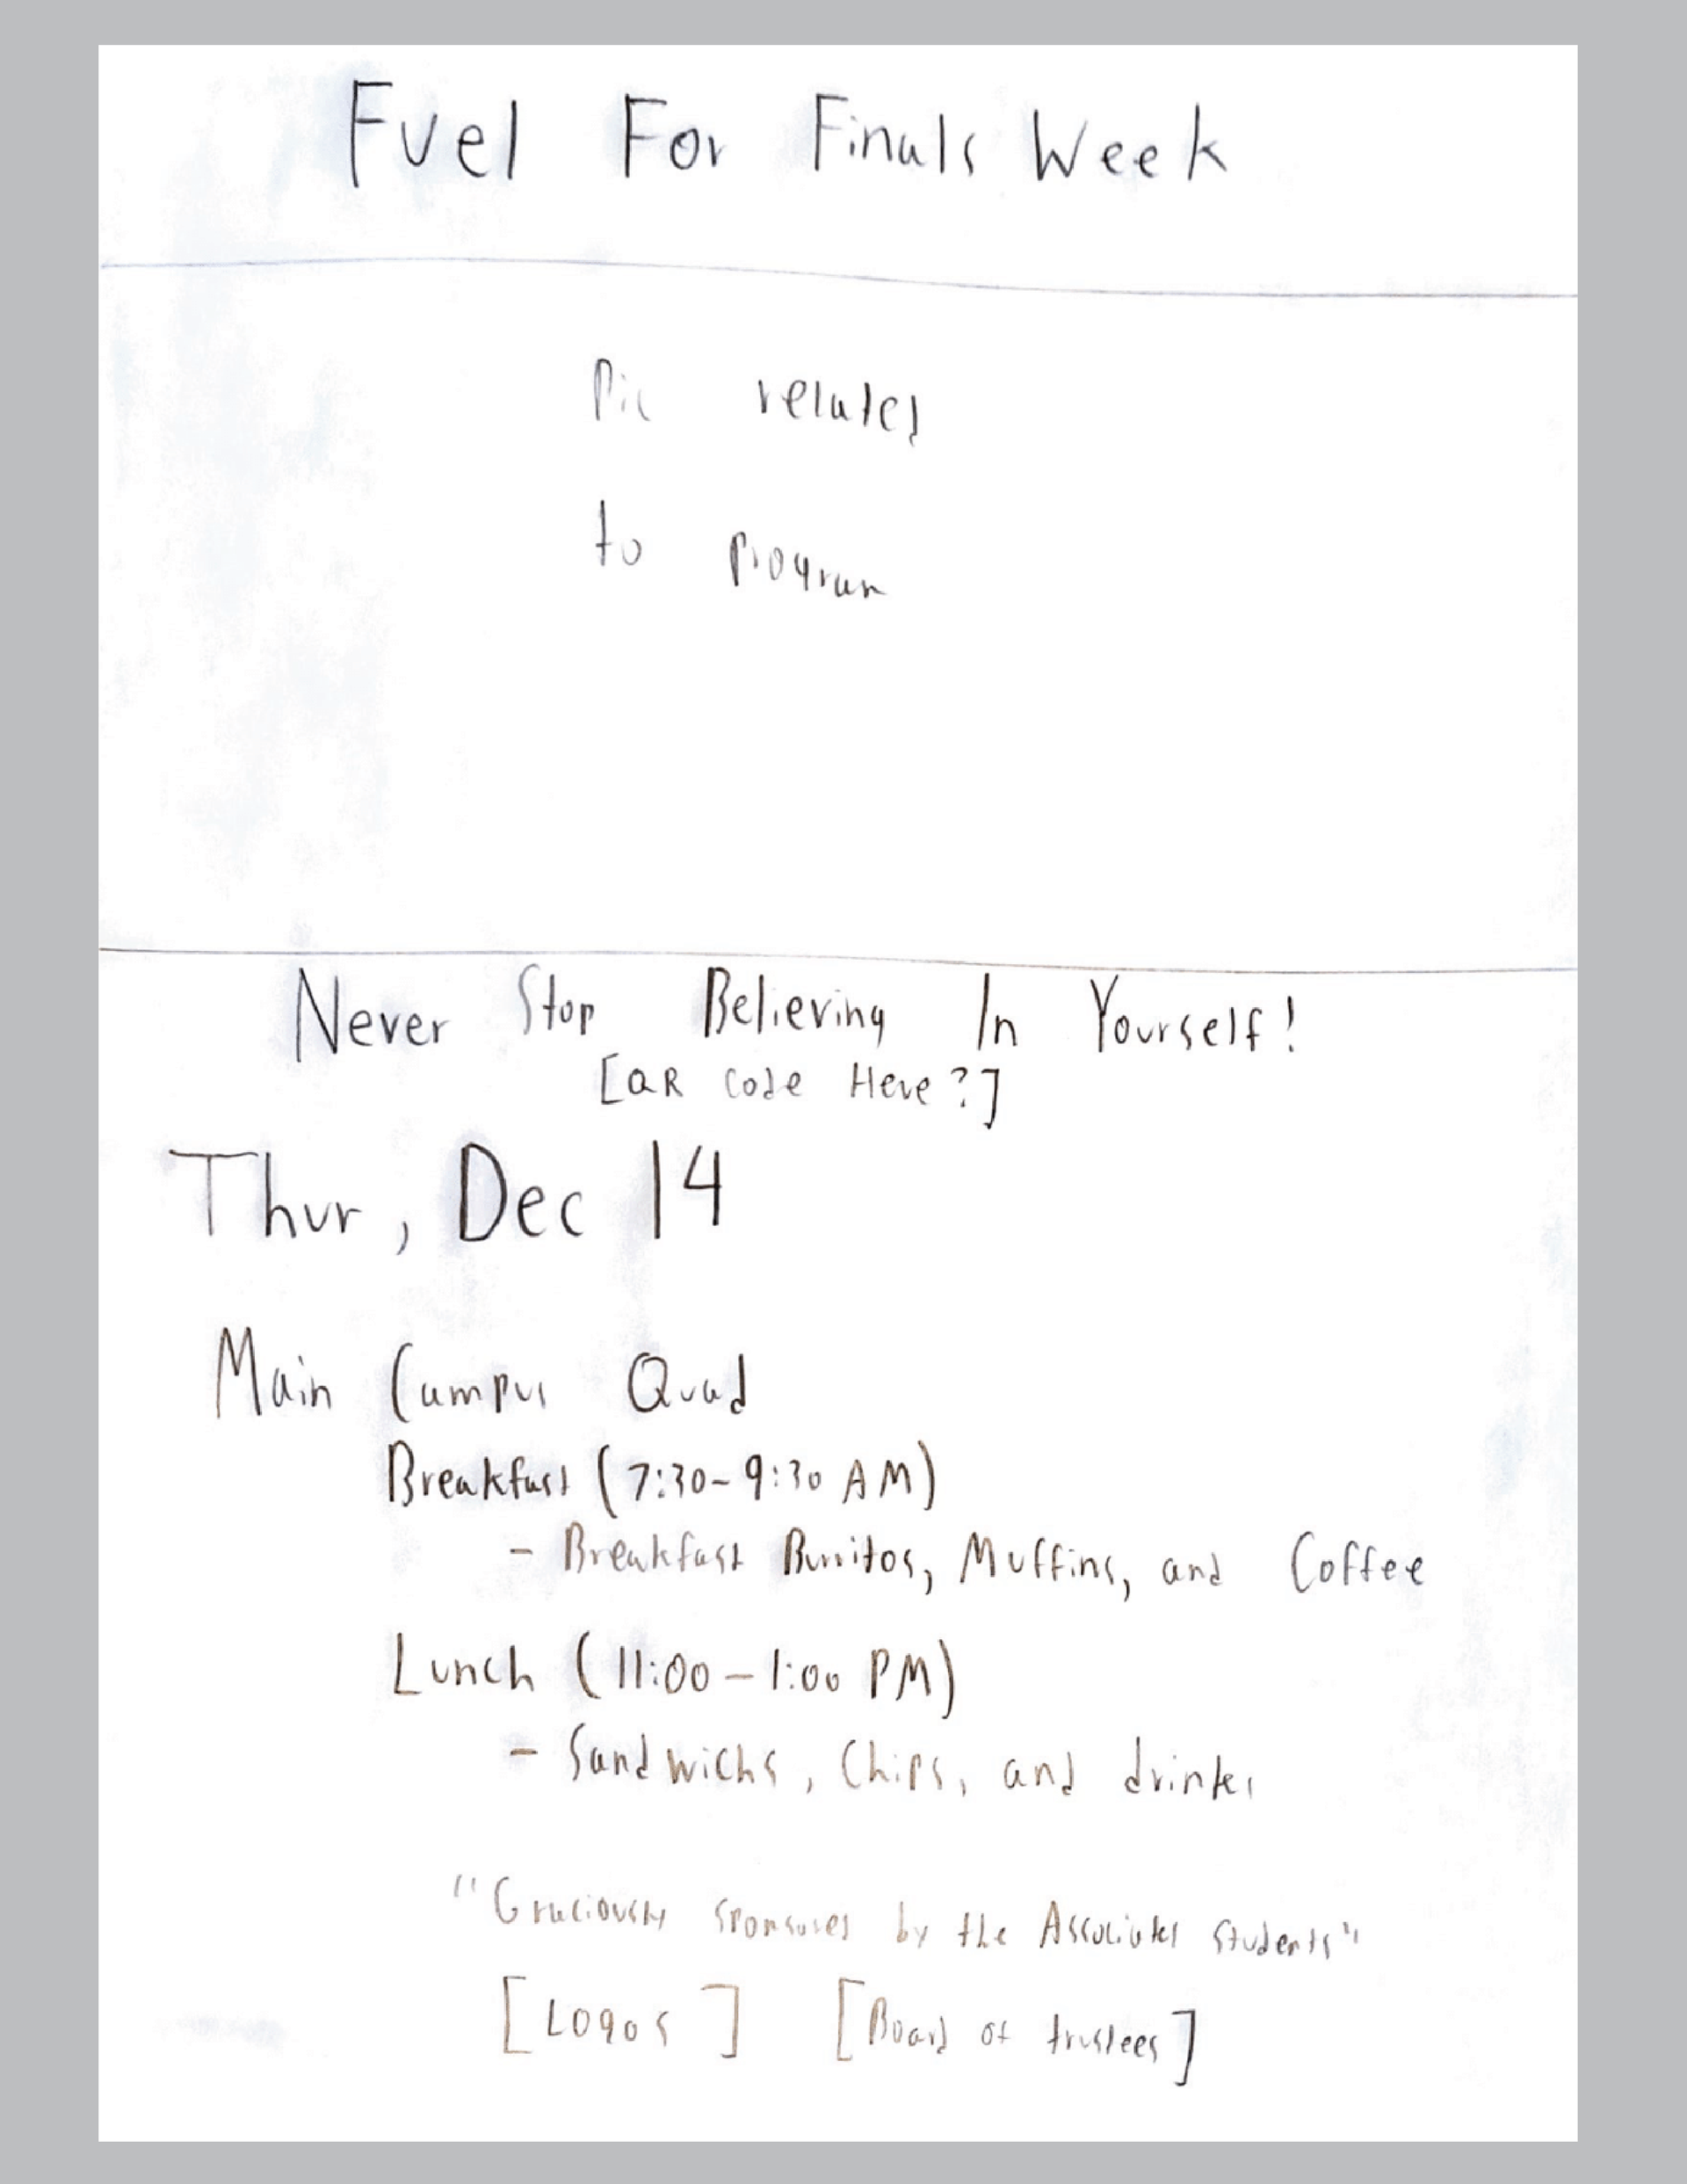 Fuel For Finals Week
Pic related
to program
Never Stop Believing In Yourself!
[QR Code Here?]
Thur, Dec 14
Main Campus Quad
Breakfast (7:30-9:30 AM)
- Breakfast Burritos, Muffins, and Coffee
Lunch (11:00-1:00 PM)
- Sandwichs, Chips, and drinks
"Graciously sponsored by the Associated Students"
[Logos] [Board of trustees]